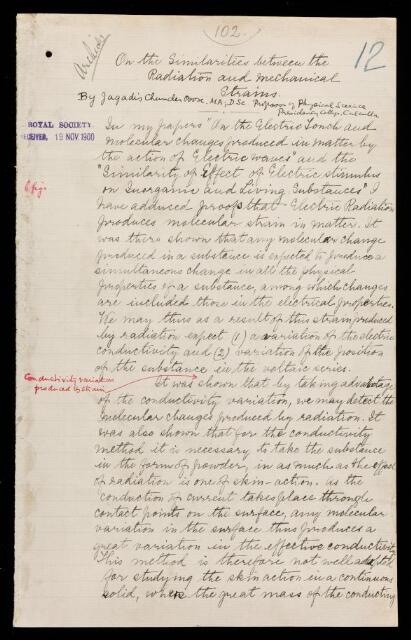 102.
Archives
12
On the Similarities between the
Radiation and Mechanical
Strains.
By Jagadis Chunder Bose. MA, D.Sc Professor of Physical Science
Presidency College, Calcutta
ROYAL SOCIETY
RECEIVED, 19 NOV 1900
In my papers "On the Electric Touch and
Molecular changes produced in matter by
the action of Electric waves" and the
"Similarity of Effect of Electric stimulus
on Inorganic and Living Substances" I
have adduced proofs that Electric Radiation
produces molecular strain in matter. It
was there shown that any molecular change
produced in a substance is expected to produce a
simultaneous change in all the physical
properties of a substance, among which changes
are included those in the electrical properties.
We may thus as a result of this strain produced
by radiation expect (1) a variation of the electric
conductivity and (2) variation of the position
of the substance in the voltaic series.
Conductivity variation
produced by strain
It was shown that by taking advantage
of the conductivity variation, we may detect the
molecular changes produced by radiation. It
was also shown that for the conductivity
method it is necessary to take the substance
in the form of powder, in as much as the effect
of radiation is one of skin-action. as the
conduction of current takes place through
contact points on the surface, any molecular
variation in the surface thus produces a
great variation in the effective conductivity.
This method is therefore not well adapted
for studying the skin action in a continuous
solid, where the great mass of the conducting